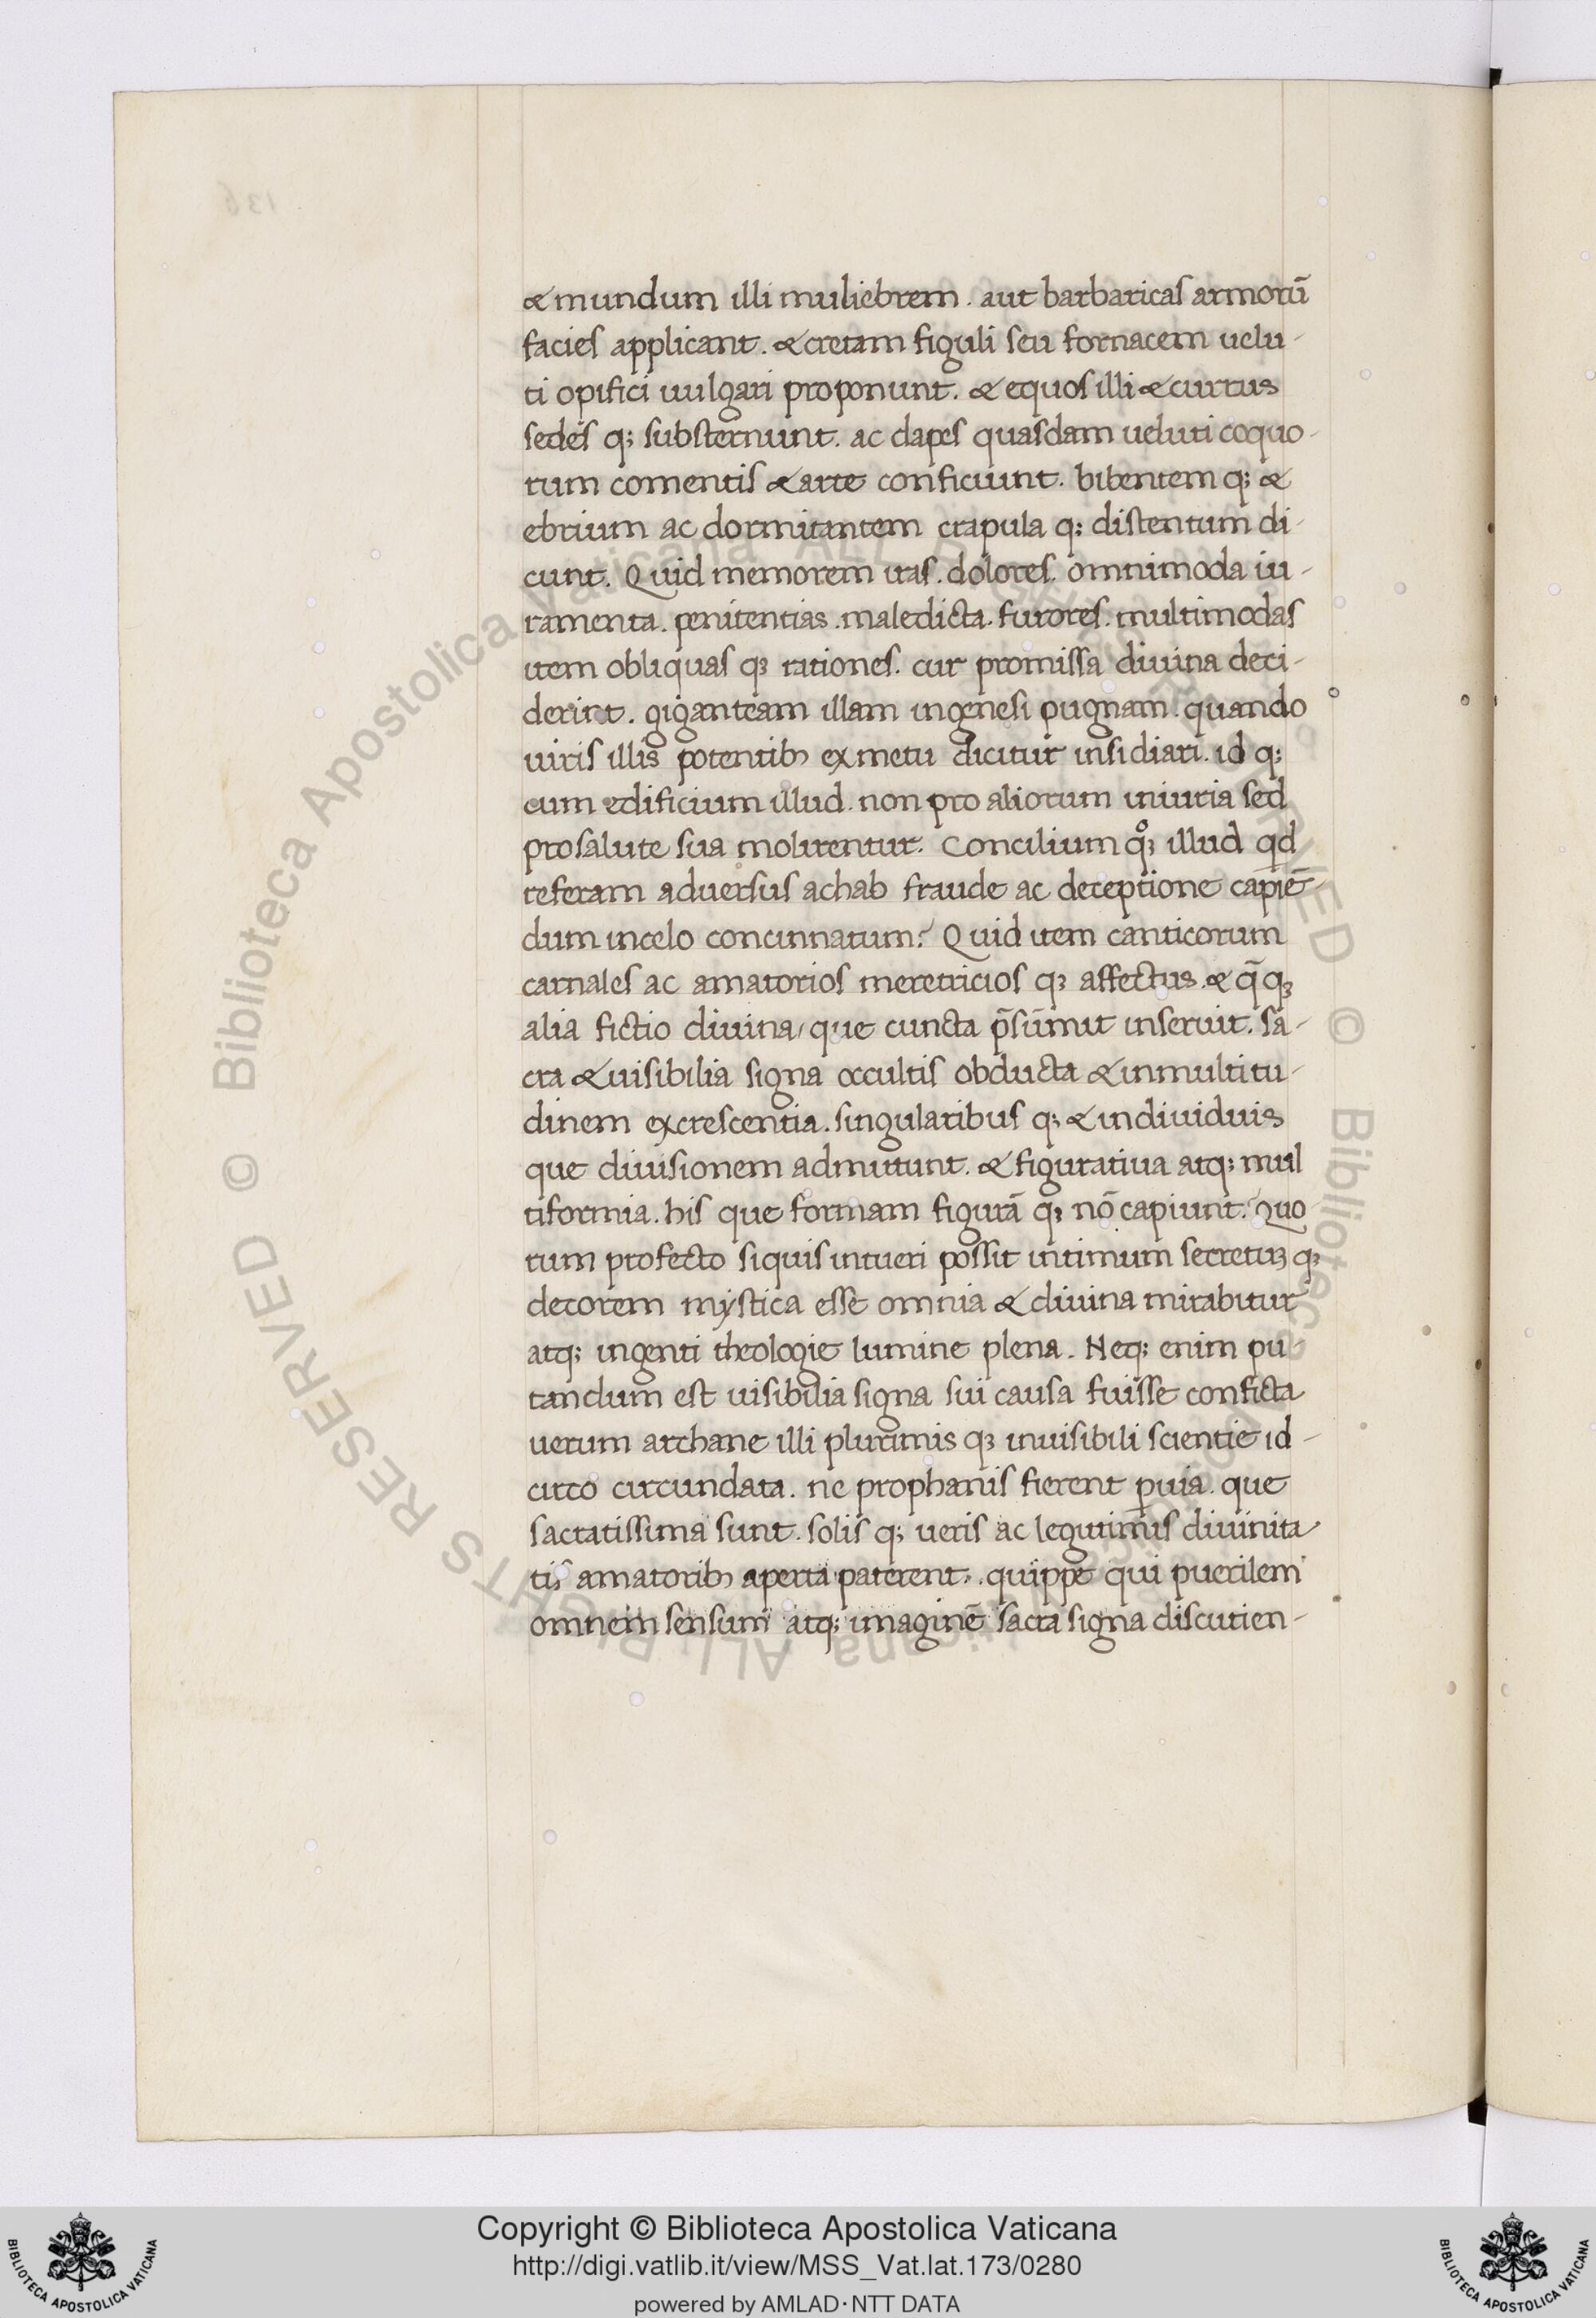 & mundum illi muliebrem. aut barbaricas armorū
facies applicant. & cretam figuli seu fornacem uelu-
ti opifici uulgari proponunt. & equos illi & currus
sedes q; substernunt. ac dapes quasdam ueluti coquo-
rum comentis & arte conficiunt. bibentem q; &
ebrium ac dormitantem crapula q; distentum di-
cunt. Quid memorem iras. dolores. omnimoda iu-
ramenta. penitentias. maledicta. furores. multimodas
item obliquas qȝ rationes. cur promissa diuina deci-
derint. giganteam illam in genesi pugnam. quando
uiris illis potentibꝫ ex metu dicitur insidiari. id q;
cum edificium illud. non pro aliorum iniuria sed
pro salute sua molirentur. Concilium q°ȝ illud qd
referam aduersus achab fraude ac deceptione capiē-
dum in celo concinnatum? Quid item canticorum
carnales ac amatorios meretricios qȝ affectus. & q̄qȝ
alia fictio diuina, que cuncta p̄sūmit inseruit. sa-
cra & uisibilia signa occultis obducta & in multitu-
dinem excrescentia. singularibus q; & indiuiduis
que diuisionem admittunt. & figuratiua atq; mul
tiformia. his que formam figurā qȝ nō capiunt. Quo
rum profecto siquis intueri possit intimum secretuȝ qȝ
decorem mystica esse omnia & diuina mirabitur
atq; ingenti theologie lumine plena. Neq; enim pu-
tandum est uisibilia signa sui causa fuisse conficta
uerum archane illi plurimis qȝ inuisibili scientie id-
circo circundata. ne prophanis fierent ꝑuia. que
sacratissima sunt. solis q; ueris ac legitimis diuinita
tis amatoribꝫ aperta paterent. quippe qui puerilem
omnem sensum atq; imaginē sacra signa discutien-
Copyright © Biblioteca Apostolica Vaticana
http://digi.vatlib.it/view/MSS_Vat.lat.173/0280
powered by AMLAD·NTT DATA